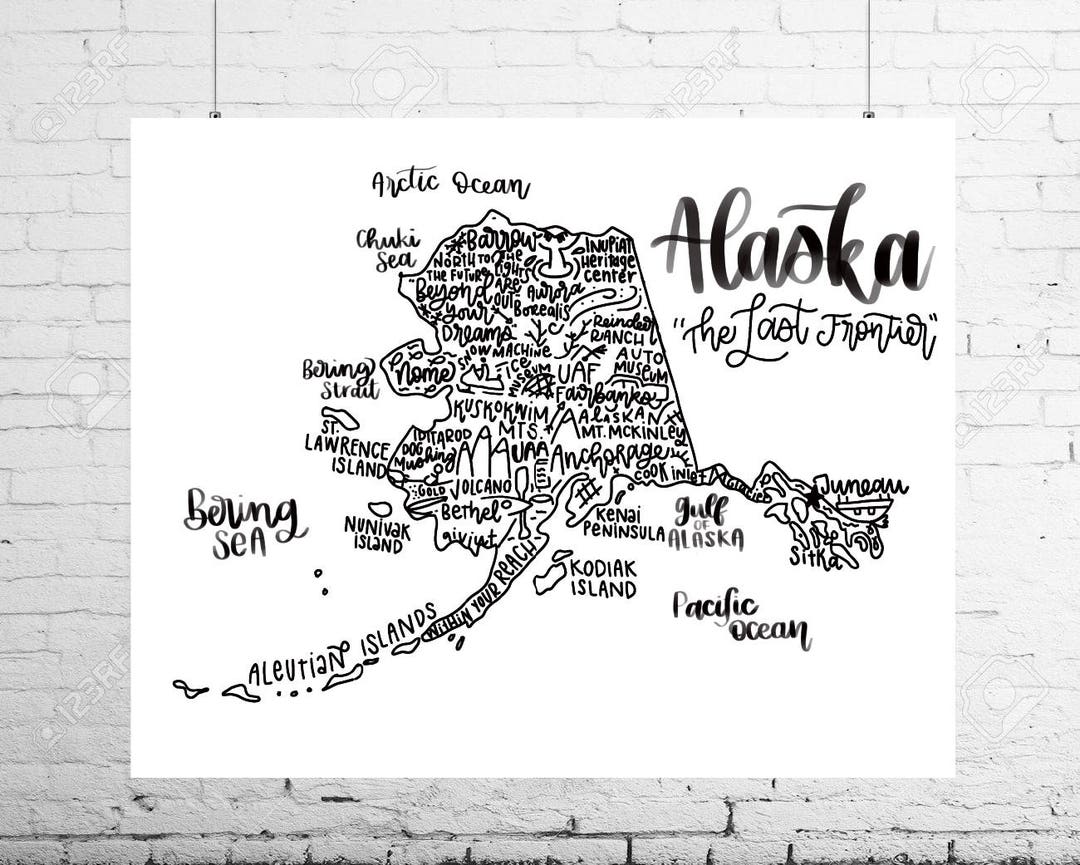 Arctic Ocean
Alaska
"The Last Frontier"
Chuki
Sea
Barrow
INUPIAT
Heritage
Center
NORTH TO
THE FUTURE
THE
LIGHTS
ARE
OUT
Beyond
your
Dreams
Aurora
Borealis
Reindeer
RANCH
SNOW MACHINE
ICE
MUSEUM
UAF
AUTO
MUSEUM
Bering
Strait
Nome
Fairbanks
KUSKOKWIM
MTS.
ALASKAN
MT. MCKINLEY
ST.
LAWRENCE
ISLAND
IDITAROD
DOG
Mushing
UAA
Anchorage
COOK INLET
GOLD
VOLCANO
Juneau
Bering
SEA
NUNIVAK
ISLAND
Bethel
KENAI
PENINSULA
Gulf
OF
ALASKA
Sitka
WITHIN YOUR REACH
KODIAK
ISLAND
Pacific
Ocean
ALEUTIAN ISLANDS
123RF